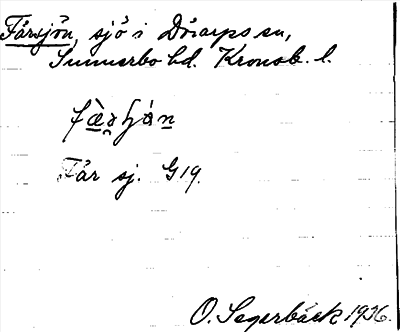 Fårsjön, sjö i Dörarps sn,
Sunnerbo hd. Kronob. l.
Får sj. G 19.
O. Segerbäck 1926.